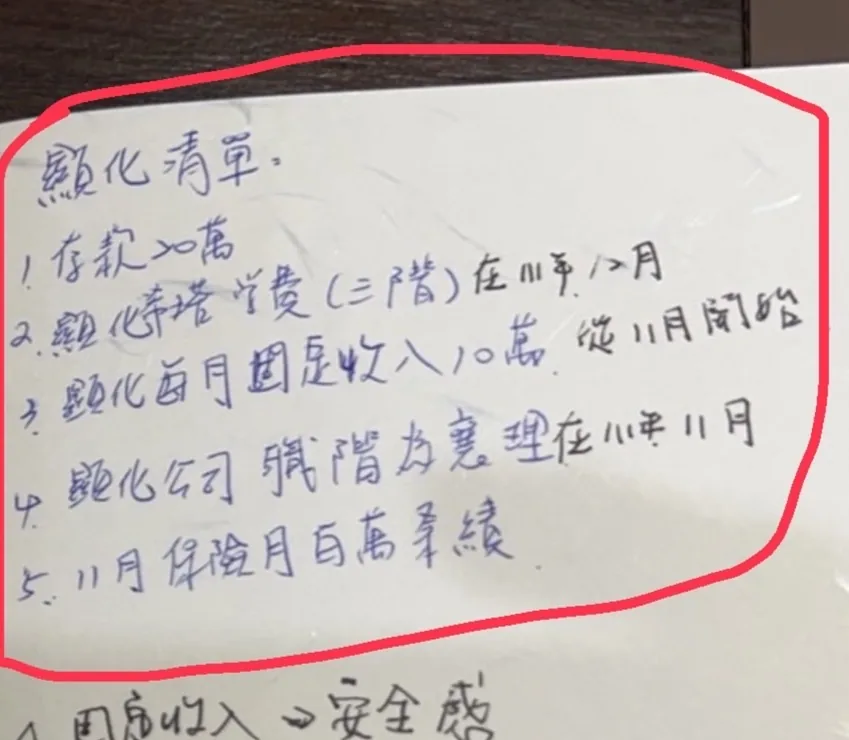 顯化清單:
1. 存款20萬
2. 顯化希塔学費(三階)在111年12月
3. 顯化每月固定收入10萬. 從11月開始
4. 顯化公司職階為襄理在111年11月
5. 11月保險月百萬業績.
固定收入⇒安全感